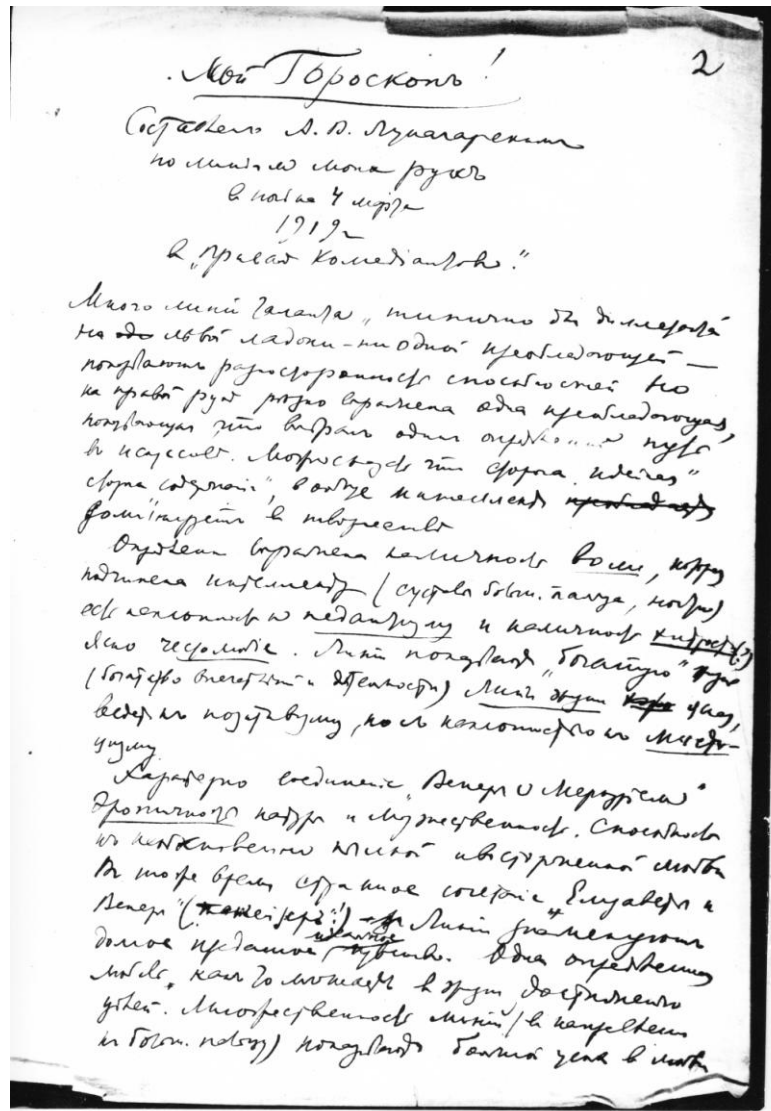 2
Мой Гороскопъ!
Составлено А. В. Луначарскимъ
по линiямъ моихъ рукъ
в ночь на 4 марта
1919 г.
в „Привалѣ Комедiантовъ".
Много линий таланта „типично для дилетанта
на лѣвой ладони – ни одной преобладающей –
показываютъ разностороннiсть способностей но
на правой рукѣ рѣзко выражена одна преобладающая,
показующая что выбранъ одинъ путь
въ искусствѣ. что сторона идейная"
сторона содержанiя", вообще интеллектъ преобладаетъ
доминируетъ в творчествѣ
выражена наличность воли, которая
подчинена интеллекту (суставъ больш. пальца, ногти)
есть наклонность къ педантизму и наличность хитрости(?)
Ясно честолюбiе. Линiи показываютъ „богатую" душу
(богатство впечатлѣнiй и дѣтскости) Линiя ума,
ведетъ къ позитивизму, но съ наклонностью къ мисти-
цизму
Характерно соединенiе „Венеры с Меркурiемъ"
Эротичность натуры и Мужественность. Способность
къ необыкновенно полной и восторженной любви
Въ тоже время странное сочетанiе „Елизаветы и
Венеры" Линiи знаменуютъ
преданное идеальное чувство. Одна опредѣленная
любовь,
цѣлей. Множественность линiй (в направленiи
къ больш. пальцу) показываетъ большой успѣхъ в любви